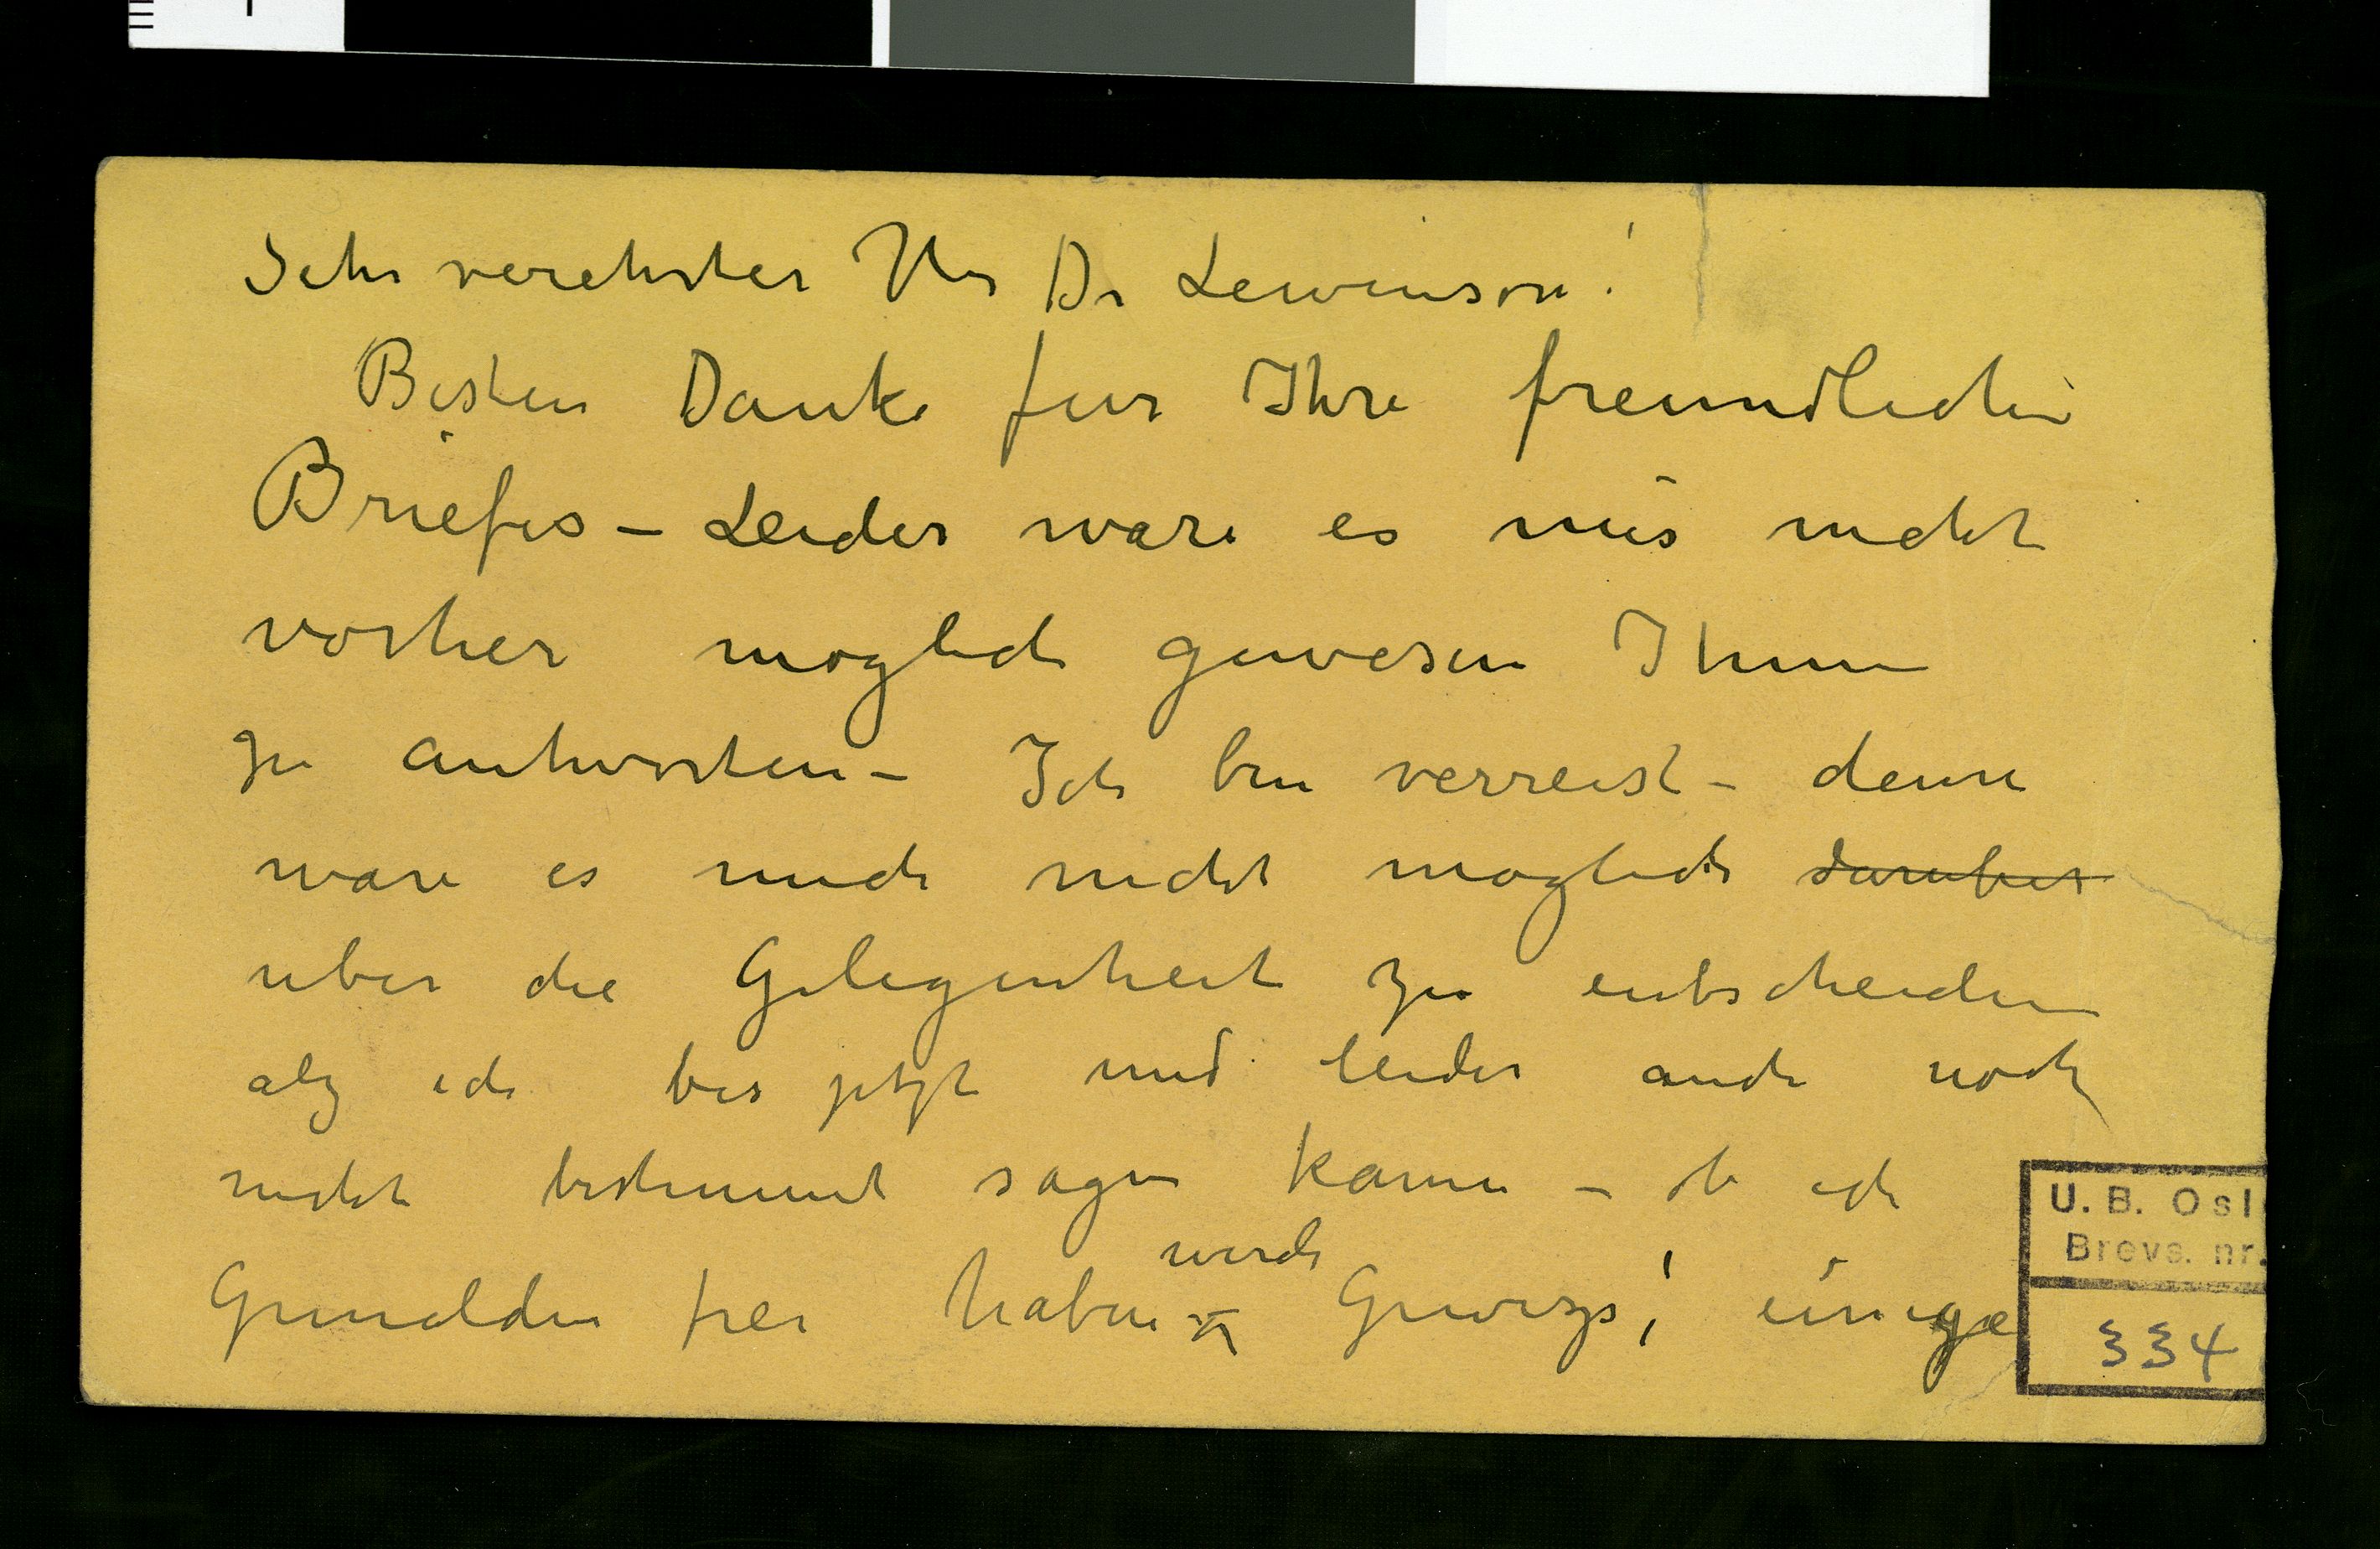 Sehr verehrter Hr Dr Lewinson!
Besten Danke fur Ihre freundlichen
Briefes – Leider ware es mir nicht
vorher moglich gewesen Ihnen
zu antworten – Ich bin verreist – denn
ware es mich nicht moglich daruber
uber die Gelegenheit zu entscheiden
alz ich bis jetzt und leider auch noch
nicht bestimmt sagen kann – ob ich
werde
Gemalden frei haben Gewizs; einige
U. B. Osl
Brevs. nr.
334